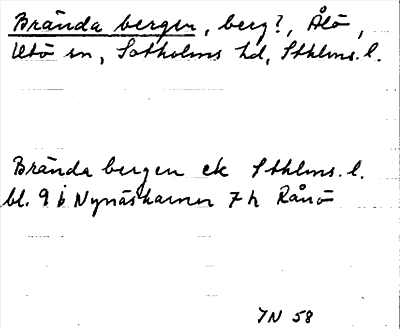 Brända bergen, berg?, Ålö,
Utö sn, Sotholms hd, Sthlms. l.
Brända bergen ek Sthlms. l.
bl. 9 i Nynäshamn 7 h Rånö
IN 58